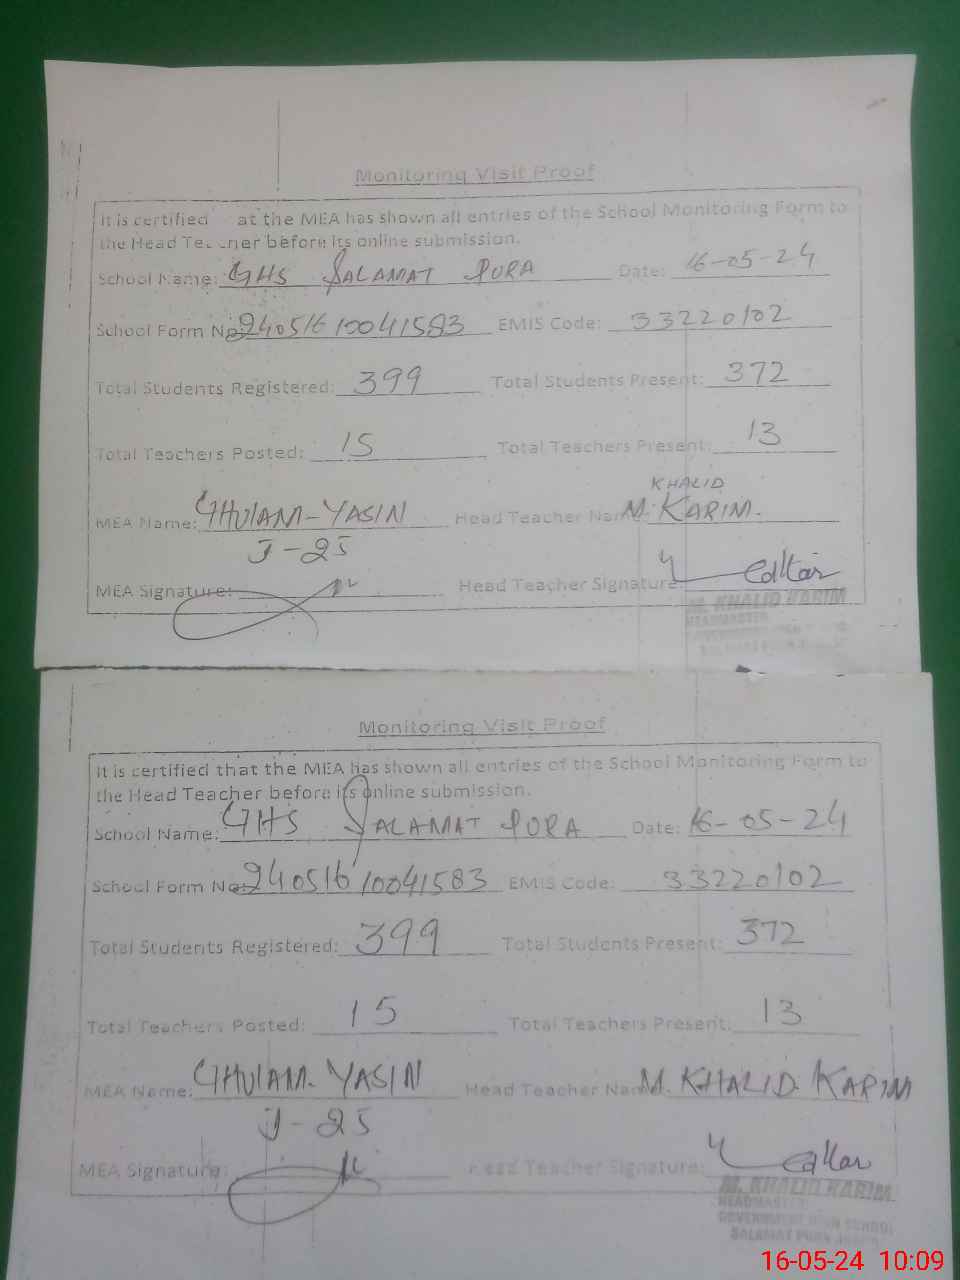 Monitoring Visit Proof
It is certified at the MEA has shown all entries of the School Monitoring Form to
the Head Teacher before its online submission.
School Name: GHS SALAMAT PURA Date: 16-05-24
School Form No 24051610041583 EMIS Code: 33220102
Total Students Registered: 399 Total Students Present: 372
Total Teachers Posted: 15 Total Teachers Present: 13
KHALID
MEA Name: GHULAM-YASIN Head Teacher Name M. KARIM.
J-25
MEA Signature: Head Teacher Signature:
M. KHALID KARIM
HEADMASTER
Monitoring Visit Proof
It is certified that the MEA has shown all entries of the School Monitoring Form to
the Head Teacher before its online submission.
School Name: GHS SALAMAT PURA Date: 16-05-24
School Form No 24051610041583 EMIS Code: 33220102
Total Students Registered: 399 Total Students Present: 372
Total Teachers Posted: 15 Total Teachers Present: 13
MEA Name: GHULAM-YASIN Head Teacher Name M. KHALID KARIM
J-25
MEA Signature: Head Teacher Signature:
M. KHALID KARIM
HEADMASTER
GOVERNMENT HIGH SCHOOL
SALAMAT PURA
16-05-24 10:09